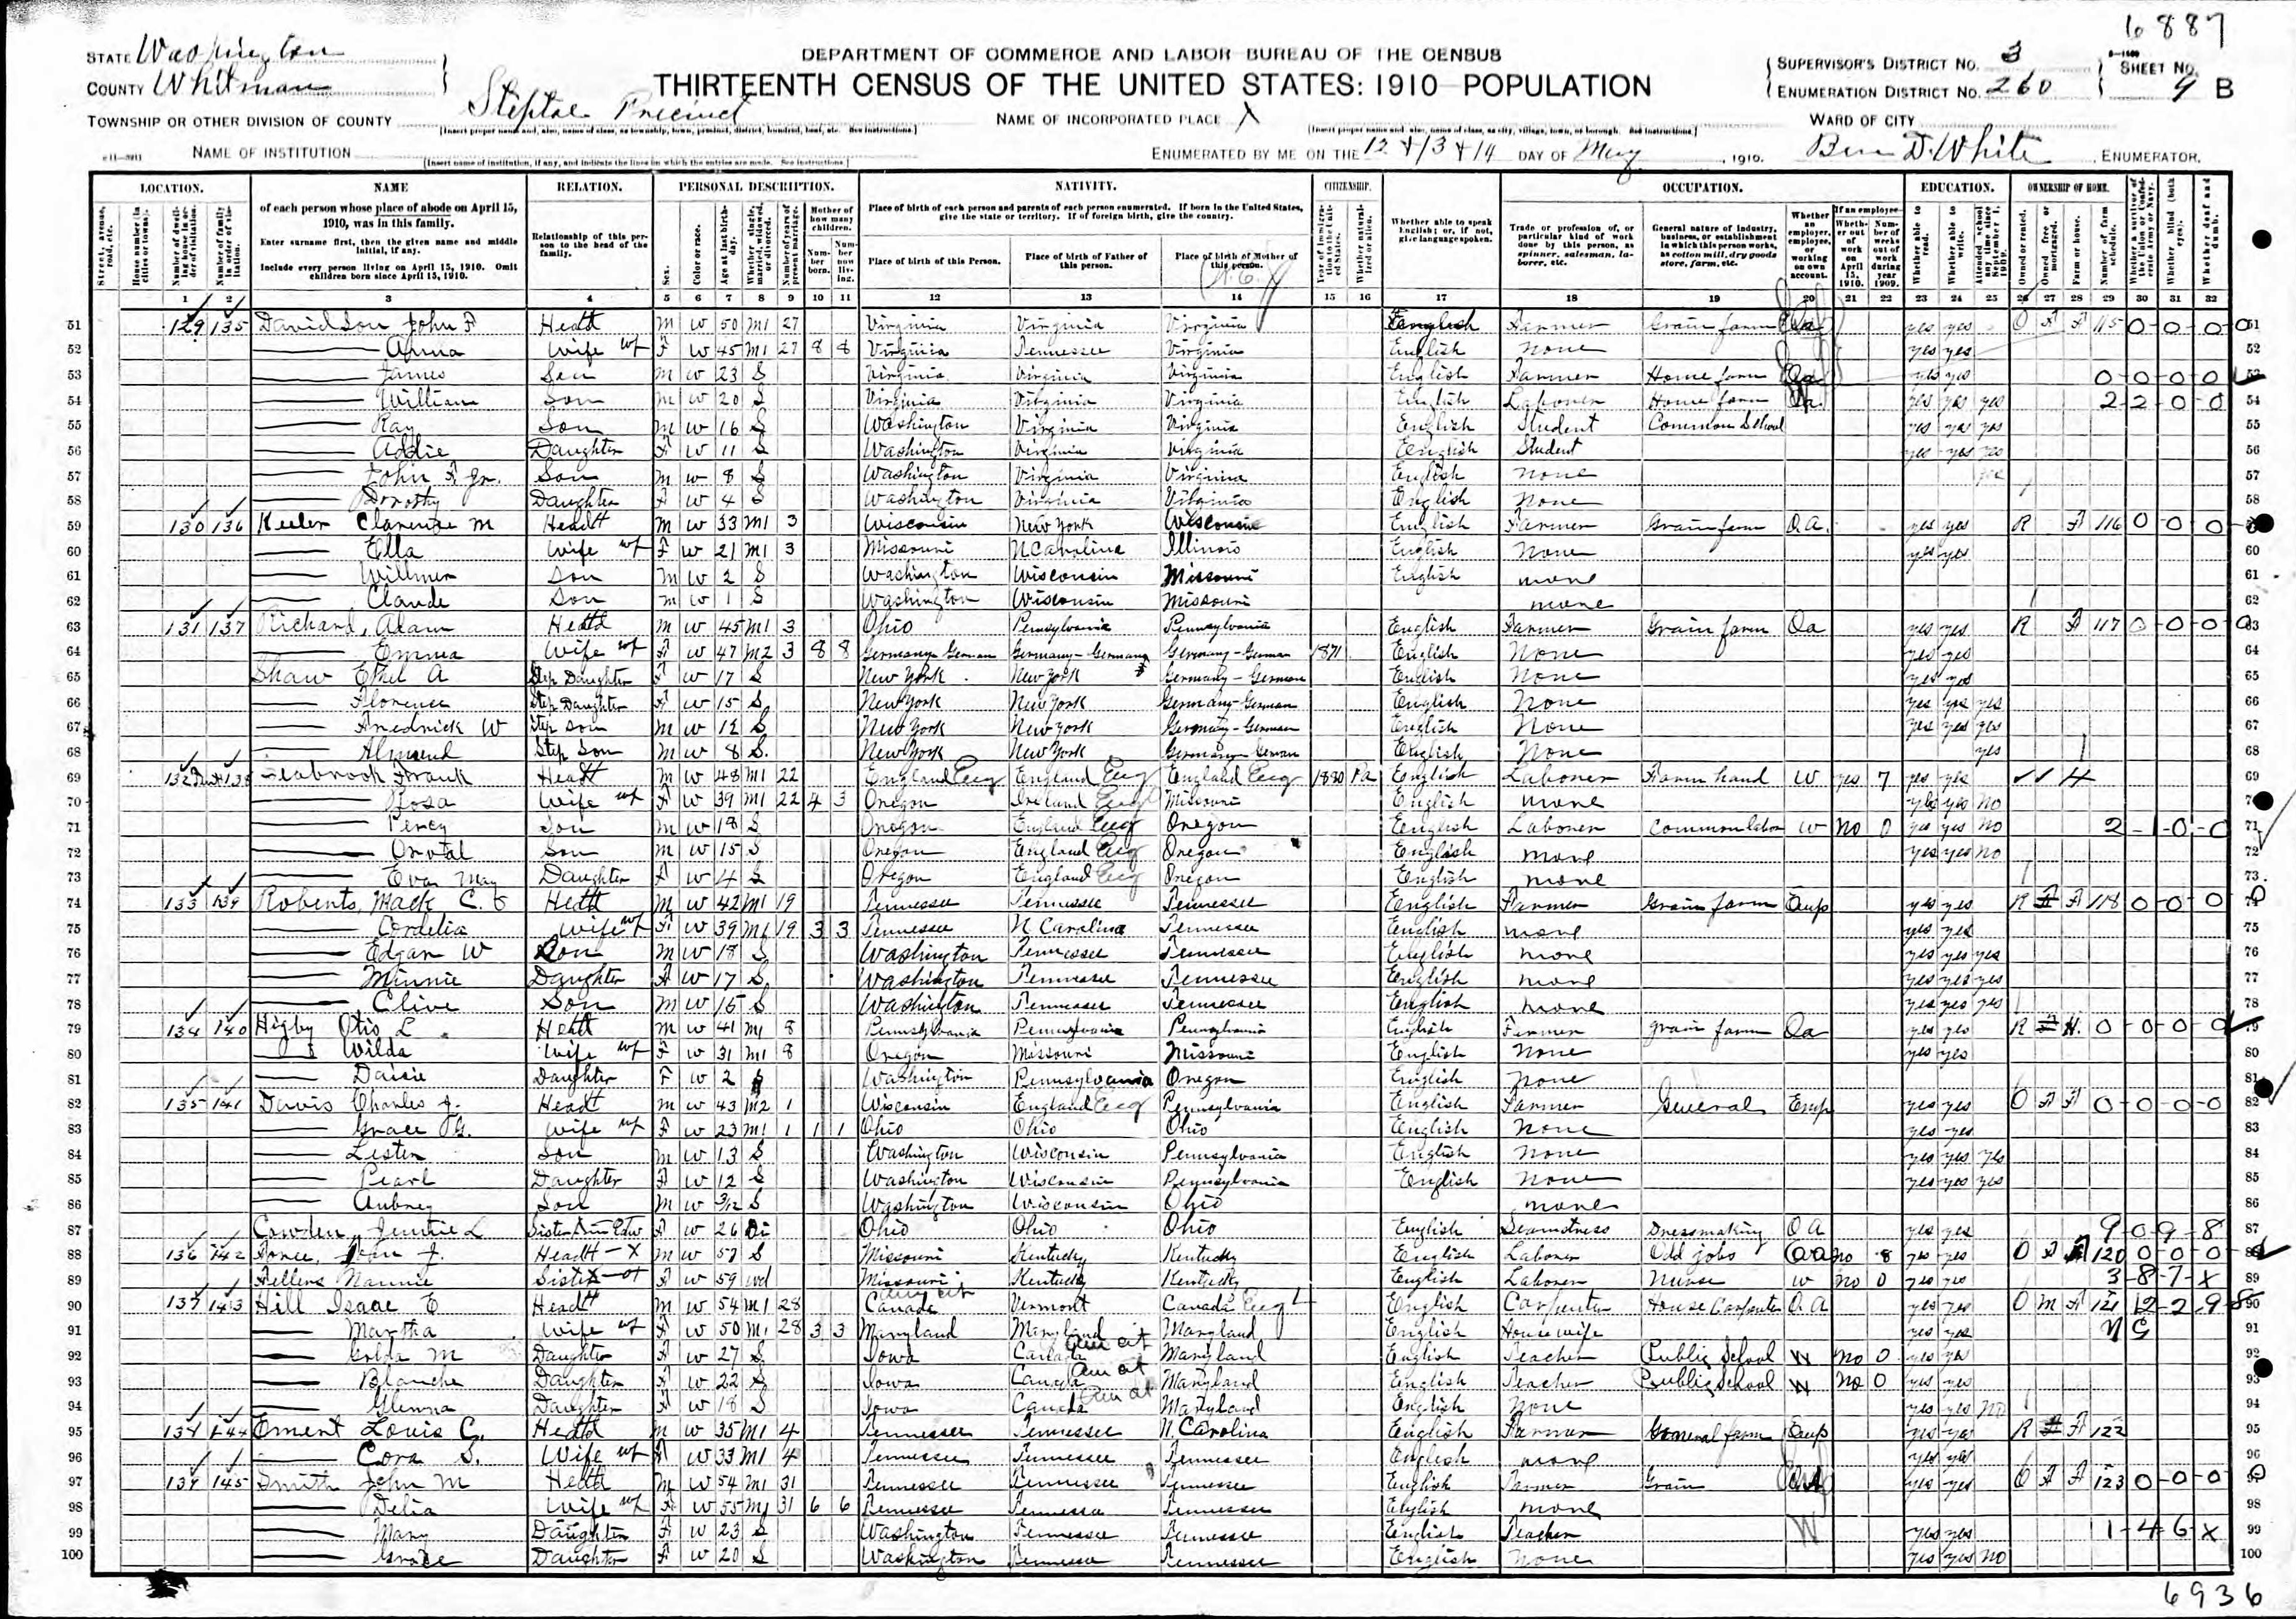 6887
STATE Washington
COUNTY Whitman
DEPARTMENT OF COMMERCE AND LABOR-BUREAU OF THE CENSUS
THIRTEENTH CENSUS OF THE UNITED STATES: 1910-POPULATION
SUPERVISOR'S DISTRICT NO. 3
ENUMERATION DISTRICT No. 260
SHEET NO. 9 B
TOWNSHIP OR OTHER DIVISION OF COUNTY Steptoe Precinct
NAME OF INCORPORATED PLACE X
WARD OF CITY
NAME OF INSTITUTION
ENUMERATED BY ME ON THE 12 + 13 + 14 DAY OF May, 1910. Ben D. White, ENUMERATOR.
LOCATION. NAME RELATION. PERSONAL DESCRIPTION. NATIVITY. CITIZENSHIP. OCCUPATION. EDUCATION. OWNERSHIP OF HOME.
of each person whose place of abode on April 15, 1910, was in this family.
Enter surname first, then the given name and middle initial, if any.
Include every person living on April 15, 1910. Omit children born since April 15, 1910.
Relationship of this person to the head of the family.
Place of birth of each person and parents of each person enumerated. If born in the United States, give the state or territory. If of foreign birth, give the country.
Place of birth of this Person. Place of birth of Father of this person. Place of birth of Mother of this person.
1 2 3 4 5 6 7 8 9 10 11 12 13 14 15 16 17 18 19 20 21 22 23 24 25 26 27 28 29 30 31 32
51 129 135 Davidson John F Head M W 50 M1 27 Virginia Virginia Virginia English Farmer Grain farm Oa yes yes O F F 115 0-0-0-0
52 Anna Wife F W 45 M1 27 8 8 Virginia Tennessee Virginia English None yes yes
53 James Son M W 23 S Virginia Virginia Virginia English Farmer Home farm Oa yes yes 0-0-0-0
54 William Son M W 20 S Virginia Virginia Virginia English Laborer Home farm yes yes yes 2 2 0 0
55 Ray Son M W 16 S Washington Virginia Virginia English Student Common School yes yes yes
56 Addie Daughter F W 11 S Washington Virginia Virginia English Student yes yes yes
57 John F Jr. Son M W 8 S Washington Virginia Virginia English None yes
58 Dorothy Daughter F W 4 S Washington Virginia Virginia English None
59 130 136 Keeler Clarence M Head M W 33 M1 3 Wisconsin New York Wisconsin English Farmer Grain farm O.A. yes yes R F 116 0-0-0
60 Ella Wife F W 21 M1 3 Missouri N Carolina Illinois English None yes yes
61 Willmer Son M W 2 S Washington Wisconsin Missouri English none
62 Claude Son M W 1 S Washington Wisconsin Missouri none
63 131 137 Richard, Adam Head M W 45 M1 3 Ohio Pennsylvania Pennsylvania English Farmer Grain farm Oa yes yes R F 117 0-0-0-0
64 Emma Wife F W 47 M2 3 8 8 Germany-German Germany-German Germany-German 1871 English None yes yes
65 Shaw Ethel A Step Daughter F W 17 S New York New York Germany-German English None yes yes
66 Florence Step Daughter F W 15 S New York New York Germany-German English None yes yes yes
67 Fredrick W Step son M W 12 S New York New York Germany-German English None yes yes yes
68 Step Son M W 8 S New York New York Germany-German English None yes
69 132 138 Seabrook Frank Head M W 48 M1 22 England Eng England Eng England Eng 1880 Pa English Laborer Farm hand W yes 7 yes yes H
70 Rosa Wife F W 39 M1 22 4 3 Oregon Ireland Eng Missouri English none yes yes no
71 Percy Son M W 18 S Oregon England Eng Oregon English Laborer Common labor W no 0 yes yes no 2-1-0-0
72 Orval Son M W 15 S Oregon England Eng Oregon English none yes yes no
73 Eva May Daughter F W 4 S Oregon England Eng Oregon English none
74 133 139 Roberts, Mack C. Head M W 42 M1 19 Tennessee Tennessee Tennessee English Farmer Grain farm Emp yes yes R F 118 0-0-0-0
75 Cordelia Wife F W 39 M1 19 3 3 Tennessee N Carolina Tennessee English none yes yes
76 Edgar W Son M W 18 S Washington Tennessee Tennessee English none yes yes yes
77 Minnie Daughter F W 17 S Washington Tennessee Tennessee English none yes yes yes
78 Clive Son M W 15 S Washington Tennessee Tennessee English none yes yes yes
79 134 140 Higby Otis L Head M W 41 M1 8 Pennsylvania Pennsylvania Pennsylvania English Farmer grain farm Oa yes yes R H. 0-0-0-0
80 Wilda Wife F W 31 M1 8 Oregon Missouri Missouri English None yes yes
81 Daisie Daughter F W 2 S Washington Pennsylvania Oregon English None
82 135 141 Davis Charles J. Head M W 43 M2 1 Wisconsin England Eng Pennsylvania English Farmer General Emp yes yes O F F 0-0-0-0
83 Grace G. Wife F W 23 M1 1 1 1 Ohio Ohio Ohio English None yes yes
84 Lester Son M W 13 S Washington Wisconsin Pennsylvania English None yes yes yes
85 Pearl Daughter F W 12 S Washington Wisconsin Pennsylvania English None yes yes yes
86 Aubrey Son M W 3/12 S Washington Wisconsin Ohio none
87 Cowden, Jennie L Sister in Law F W 26 Di Ohio Ohio Ohio English Seamstress Dressmaking O A yes yes 9-0-9-8
88 136 142 Head M W 57 S Missouri Kentucky Kentucky English Laborer Odd jobs no 8 yes yes O F F 120 0-0-0
89 Fellers Nannie Sister F W 59 wd Missouri Kentucky Kentucky English Laborer Nurse W no 0 yes yes 3-8-7-X
90 137 143 Hill Isaac E Head M W 54 M1 28 Canada Vermont Canada Eng English Carpenter House Carpenter O A yes yes O M F 121 12-2-9-8
91 Martha Wife F W 50 M1 28 3 3 Maryland Maryland Maryland English Housewife yes yes
92 M Daughter F W 27 S Iowa Canada Am cit Maryland English Teacher Public School W no 0 yes yes
93 Blanche Daughter F W 22 S Iowa Canada Am cit Maryland English Teacher Public School W no 0 yes yes
94 Glenna Daughter F W 18 S Iowa Canada Am cit Maryland English None yes yes no
95 134 144 Ement Louis C. Head M W 35 M1 4 Tennessee Tennessee N. Carolina English Farmer General farm Emp yes yes R F 122
96 Cora S. Wife F W 33 M1 4 Tennessee Tennessee Tennessee English none yes yes
97 139 145 Smith John M Head M W 54 M1 31 Tennessee Tennessee Tennessee English Farmer Grain yes yes O F F 123 0-0-0-0
98 Delia Wife F W 55 M1 31 6 6 Tennessee Tennessee Tennessee English none
99 Mary Daughter F W 23 S Washington Tennessee Tennessee English Teacher W yes yes 1-4-6-X
100 Grace Daughter F W 20 S Washington Tennessee Tennessee English None yes yes no
6936